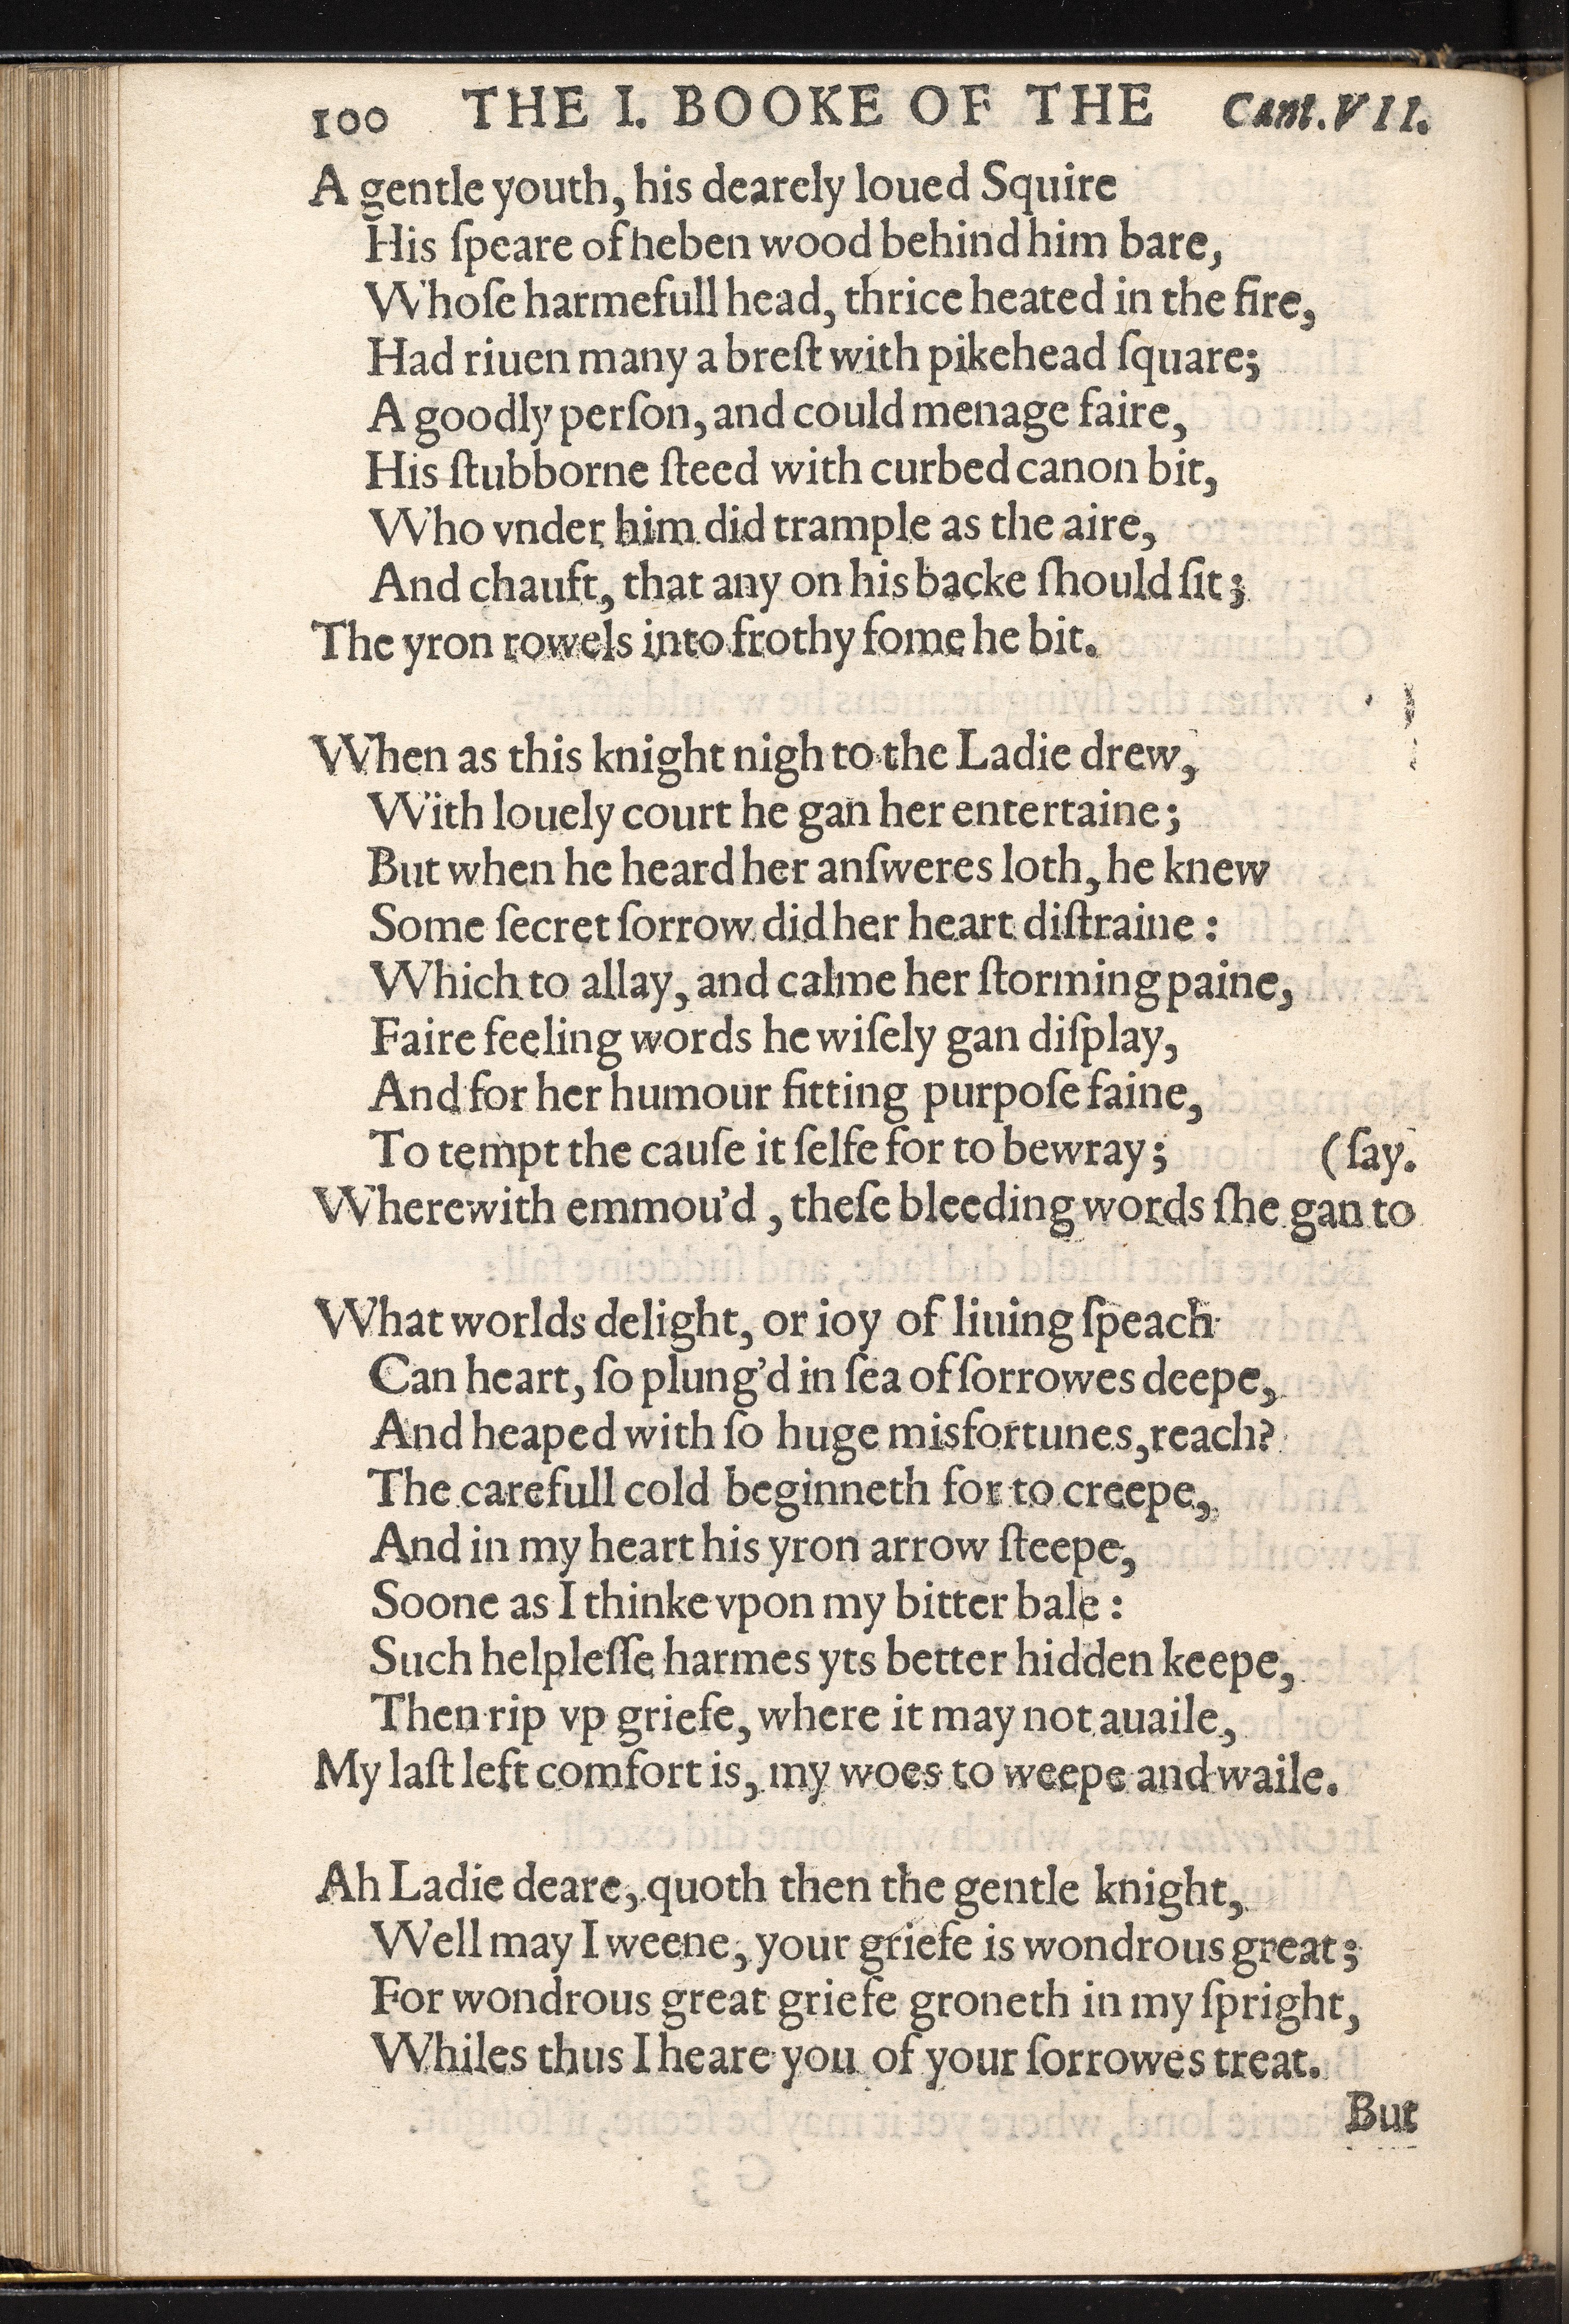 100 THE I. BOOKE OF THE Cant. VII.
A gentle youth, his dearely loued Squire
His ſpeare of heben wood behind him bare,
Whoſe harmefull head, thrice heated in the fire,
Had riuen many a breſt with pikehead ſquare;
A goodly perſon, and could menage faire,
His ſtubborne ſteed with curbed canon bit,
Who vnder him did trample as the aire,
And chauft, that any on his backe ſhould ſit;
The yron rowels into frothy fome he bit.
When as this knight nigh to the Ladie drew,
With louely court he gan her entertaine;
But when he heard her anſweres loth, he knew
Some ſecret ſorrow did her heart diſtraine:
Which to allay, and calme her ſtorming paine,
Faire feeling words he wiſely gan diſplay,
And for her humour fitting purpoſe faine,
To tempt the cauſe it ſelfe for to bewray; (ſay.
Wherewith emmou'd, theſe bleeding words ſhe gan to
What worlds delight, or ioy of liuing ſpeach
Can heart, ſo plung'd in ſea of ſorrowes deepe,
And heaped with ſo huge misfortunes, reach?
The carefull cold beginneth for to creepe,
And in my heart his yron arrow ſteepe,
Soone as I thinke vpon my bitter bale:
Such helpleſſe harmes yts better hidden keepe,
Then rip vp griefe, where it may not auaile,
My laſt left comfort is, my woes to weepe and waile.
Ah Ladie deare, quoth then the gentle knight,
Well may I weene, your griefe is wondrous great;
For wondrous great griefe groneth in my ſpright,
Whiles thus I heare you of your ſorrowes treat.
But